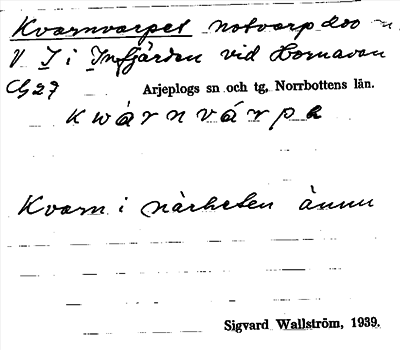 Kvarnvarpet notvarp 200 m
V I i Infjärden vid Hornavan
Cg 27 Arjeplogs sn och tg, Norrbottens län.
kwárnvárpe
Kvarn i närheten ännu
Sigvard Wallström, 1939.